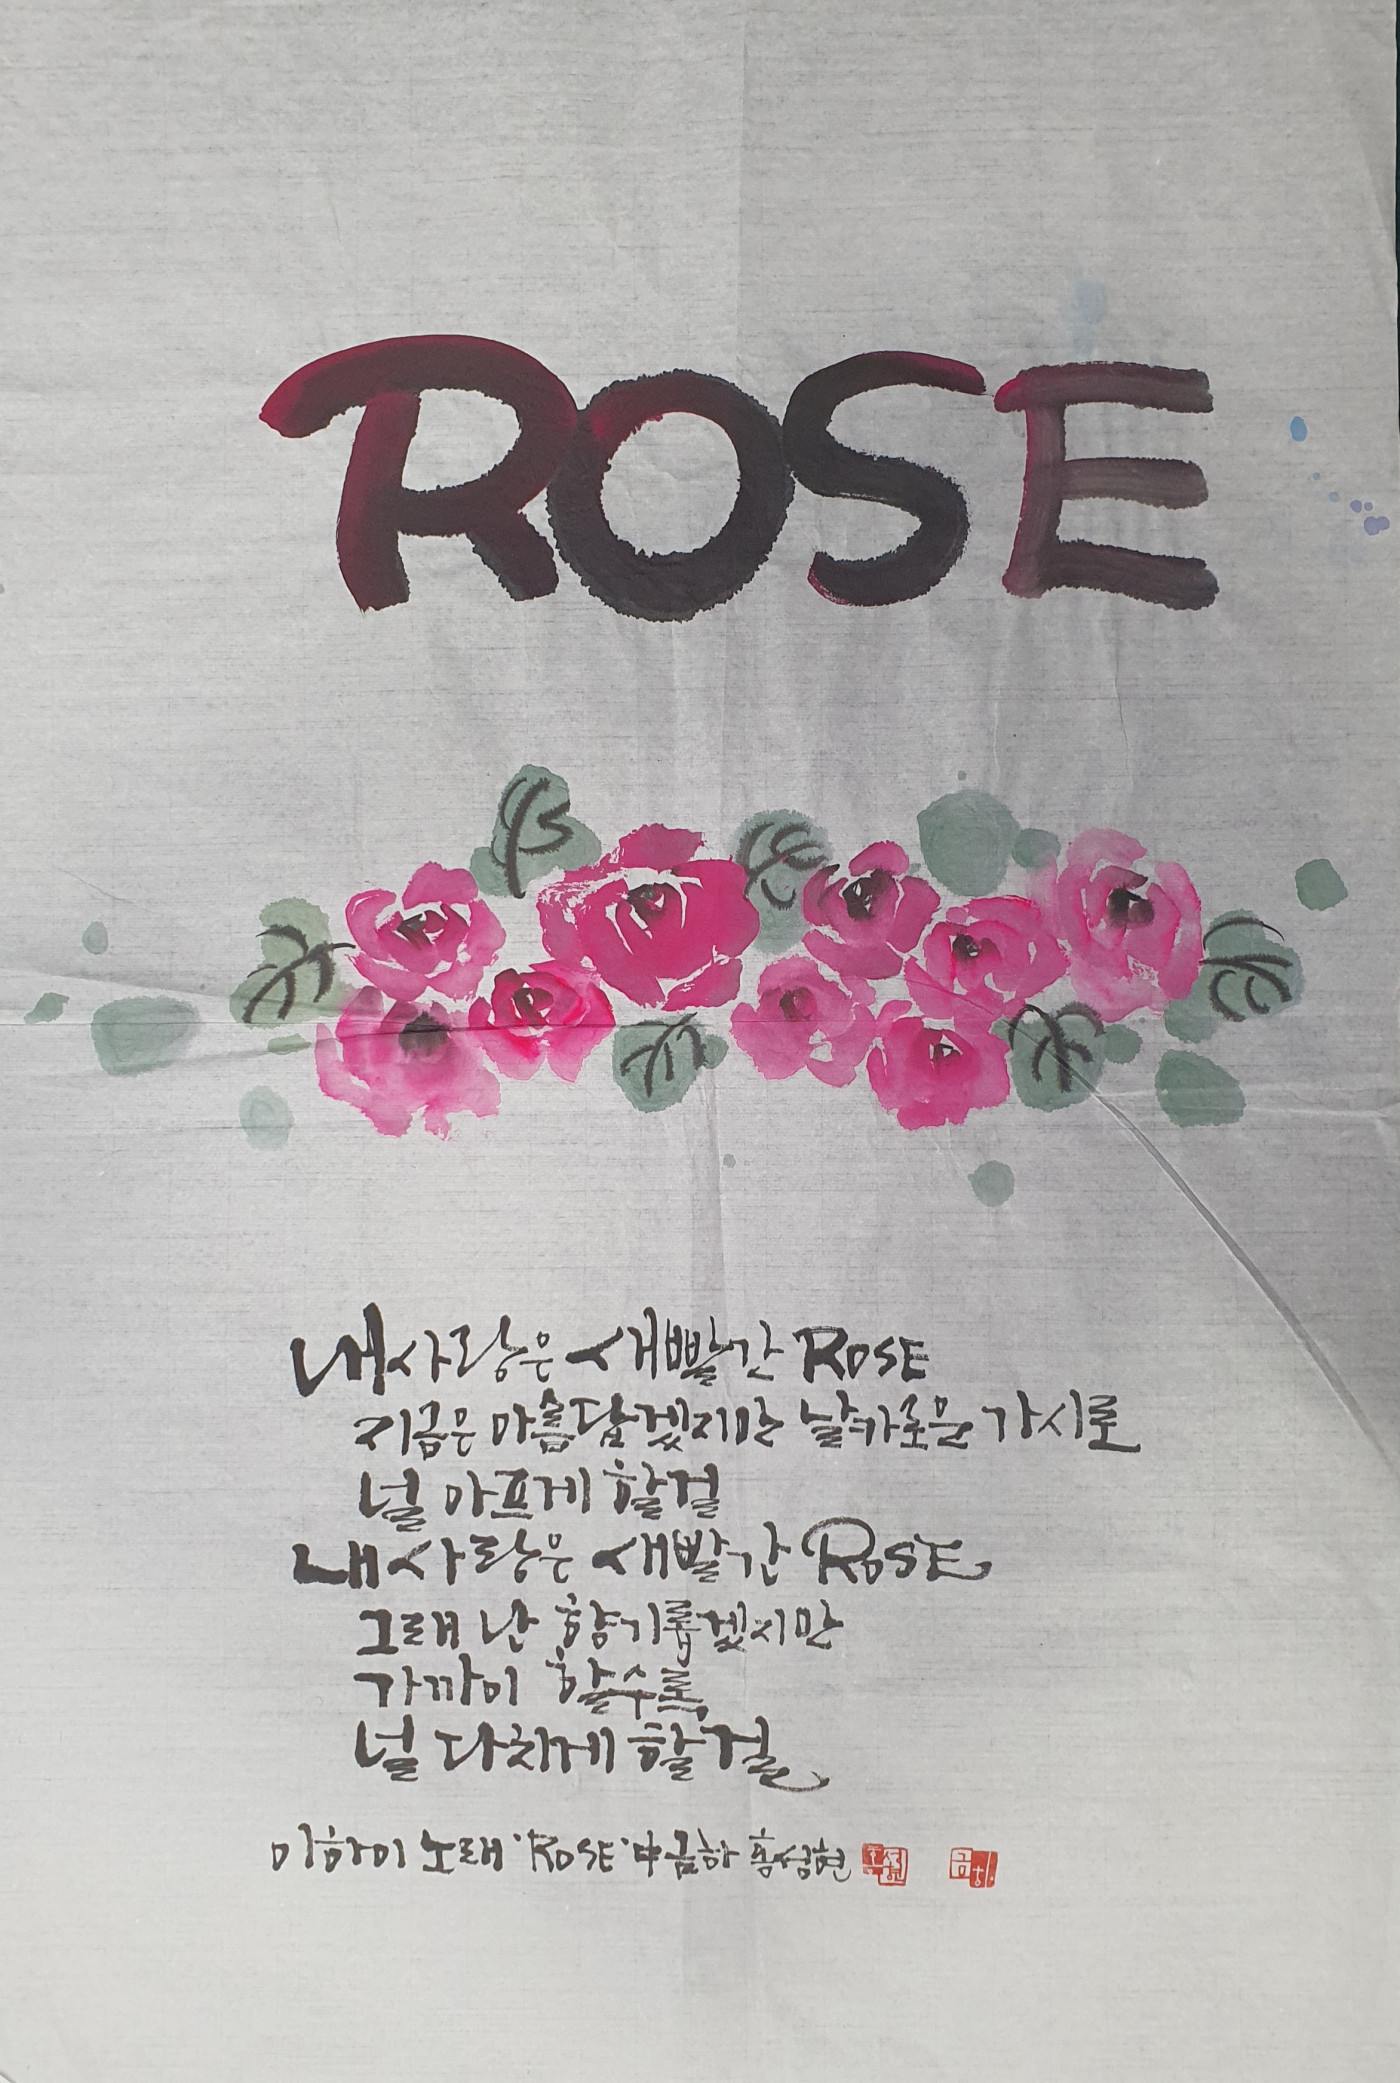 ROSE
내 사랑은 새빨간 ROSE
지금은 아름답겠지만 날카로운 가시로
널 아프게 할걸
내 사랑은 새빨간 ROSE
그래 난 향기롭겠지만
가까이 할수록
널 다치게 할걸
이하이 노래 'ROSE' 中 금하 홍성현